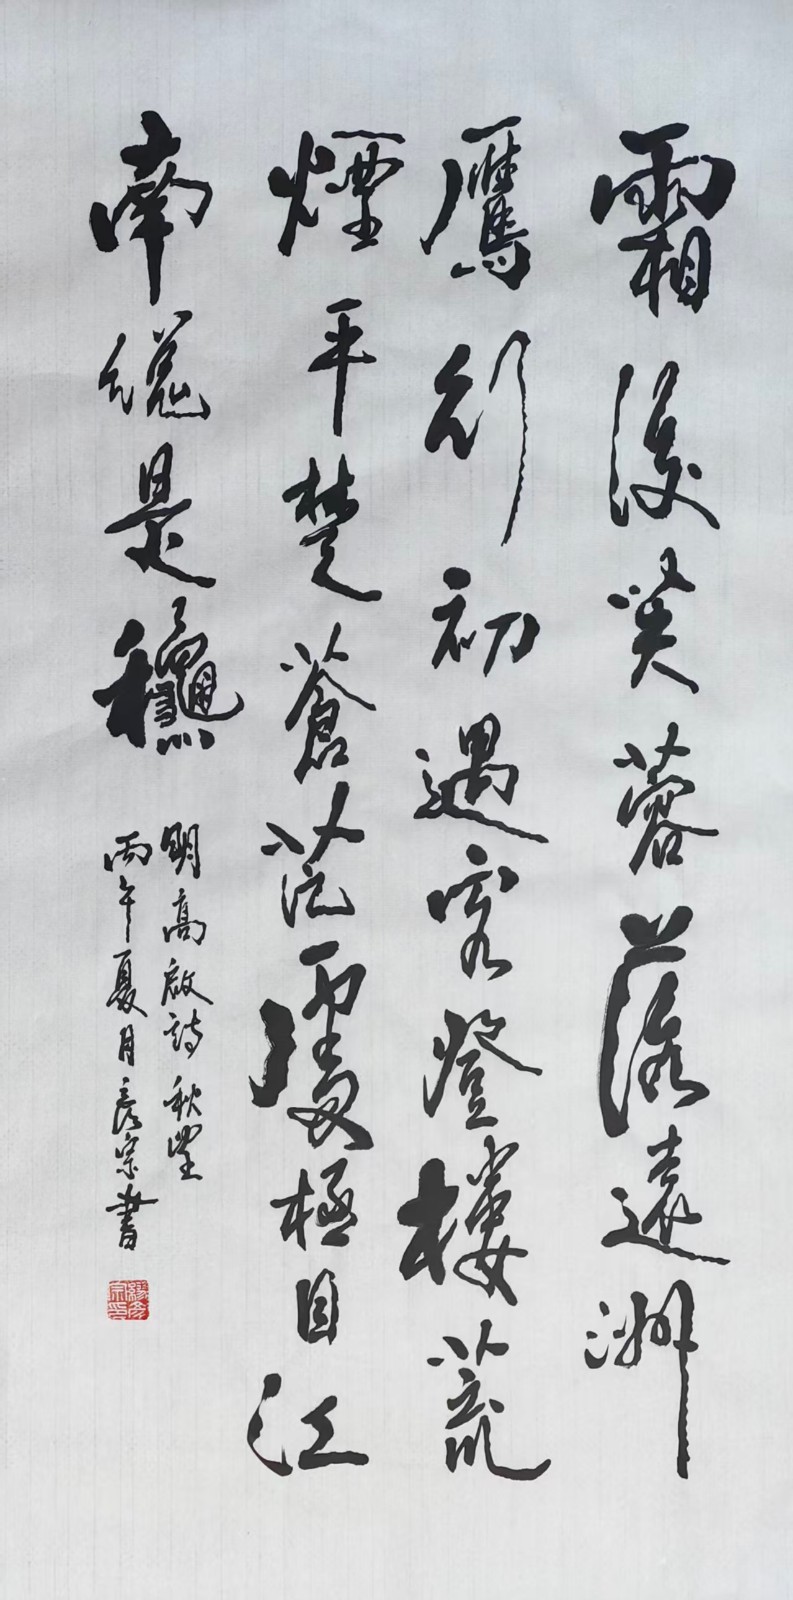 霜後芙蓉落遠洲
鴈行初過客登樓荒
煙平楚蒼茫處極目江
南總是龝
明高啟詩秋望
丙午夏月彦宗書